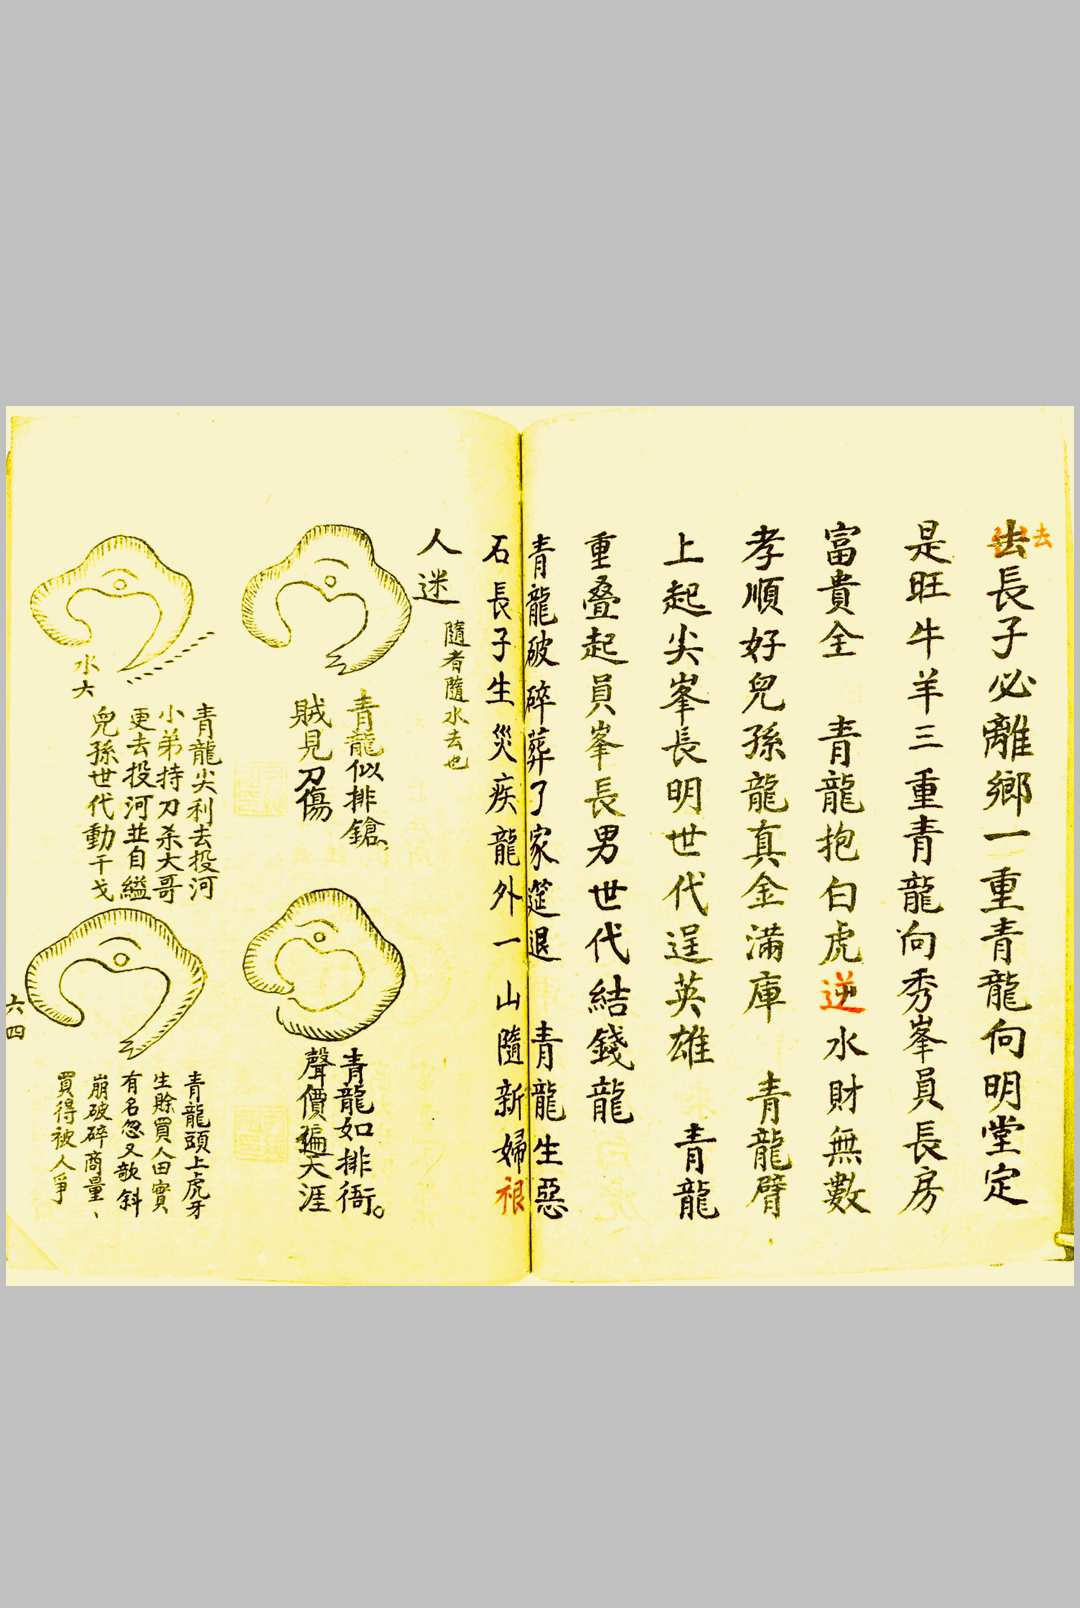 去長子必離鄉一重青龍向明堂定
去
是旺牛羊三重青龍向秀峯員長房
富貴全　青龍抱白虎逆水財無數
孝順好兒孫龍真金滿庫　青龍臂
上起尖峯長明世代逞英雄　青龍
重叠起員峯長男世代結錢龍
青龍破碎葬了家筵退　青龍生惡
石長子生災疾龍外一山隨新婦裉
人迷
隨者隨水去也
青龍似排鎗
賊見刀傷
青龍如排衙。
聲價遍天涯
水六
青龍尖利去投河
小弟持刀杀大哥
更去投河並自縊
兒孫世代動干戈
青龍頭上虎牙
生賒買人田實
有名忽又欹斜
崩破碎商量、
買得被人爭
六四